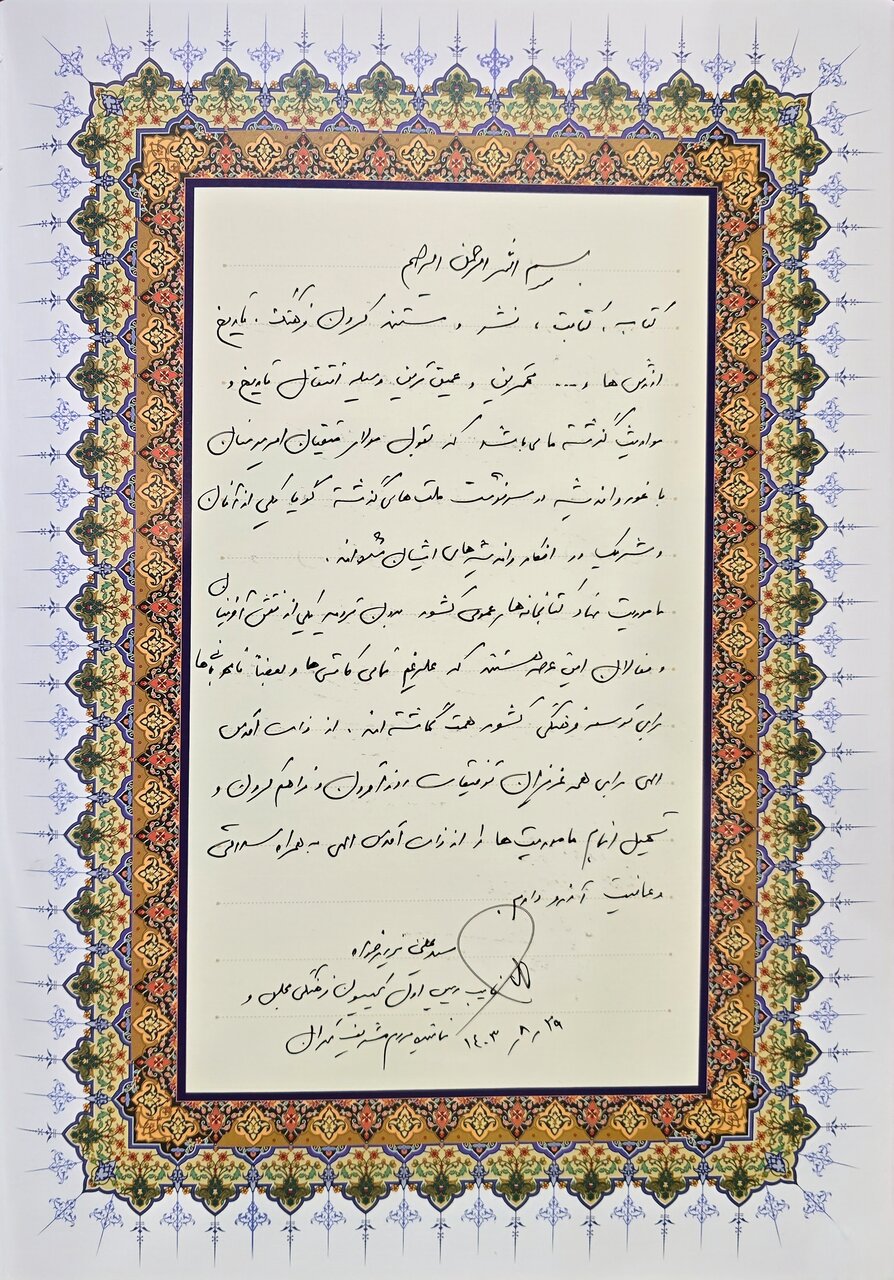 بسم الله الرحمن الرحیم
کتاب، کتابت، نشر و مستند کردن فرهنگ، تاریخ
ارزش ها و ... مهمترین و عمیق ترین وسیله انتقال تاریخ و
مواریث گذشته ما می باشد که بقول مولای متقیان امیرمومنان
با غور و اندیشه در سرنوشت ملت های گذشته گویا یکی از آنان
و شریک در افکار و اندیشه های ایشان شده اند.
ماموریت نهاد کتابخانه های عمومی کشور بدون تردید یکی از نقش آفرینان
و فعالان این عرصه هستند که علیرغم تمامی کاستی ها و بعضاً
برای توسعه فرهنگی کشور همت گماشته اند. از ذات اقدس
الهی برای همه عزیزان توفیقات روزافزون و فراهم کردن و
تسهیل انجام ماموریت ها را از ذات اقدس الهی به همراه سلامتی
و عافیت آرزو دارم.
سید علی یزدی خواه
نایب رییس اول کمیسیون فرهنگی مجلس و
نماینده مردم شریف تهران ۱۴۰۳/۸/۲۹